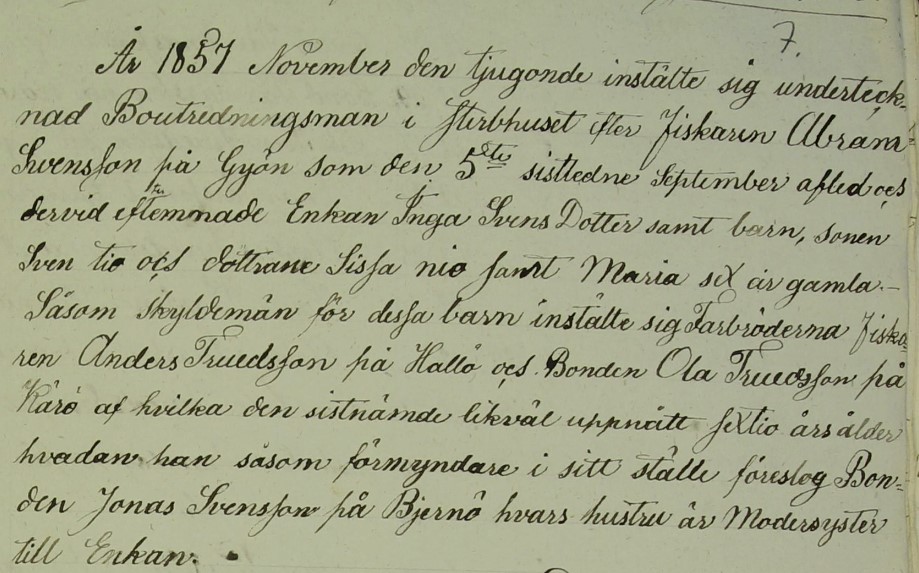 7.
År 1857 November den tjugonde instälte sig underteck-
nad Boutredningsman i Sterbhuset efter Fiskaren Abram
Svensson på Gyön som den 5te sistledne September afled och
dervid efterlemnade Enkan Inga Svens Dotter samt barn, sonen
Sven tio och döttrane Sissa nio samt Maria sex år gamla.-
Såsom skyldemän för dessa barn instälte sig Farbröderna Fiska-
ren Anders Truedsson på Hallö och Bonden Ola Truedsson på
Kärö af hvilka den sistnämde likväl uppnått sextio års ålder
hvadan han såsom förmyndare i sitt ställe föreslog Bon-
den Jonas Svensson på Bjernö hvars hustru är Modersyster
till Enkan.